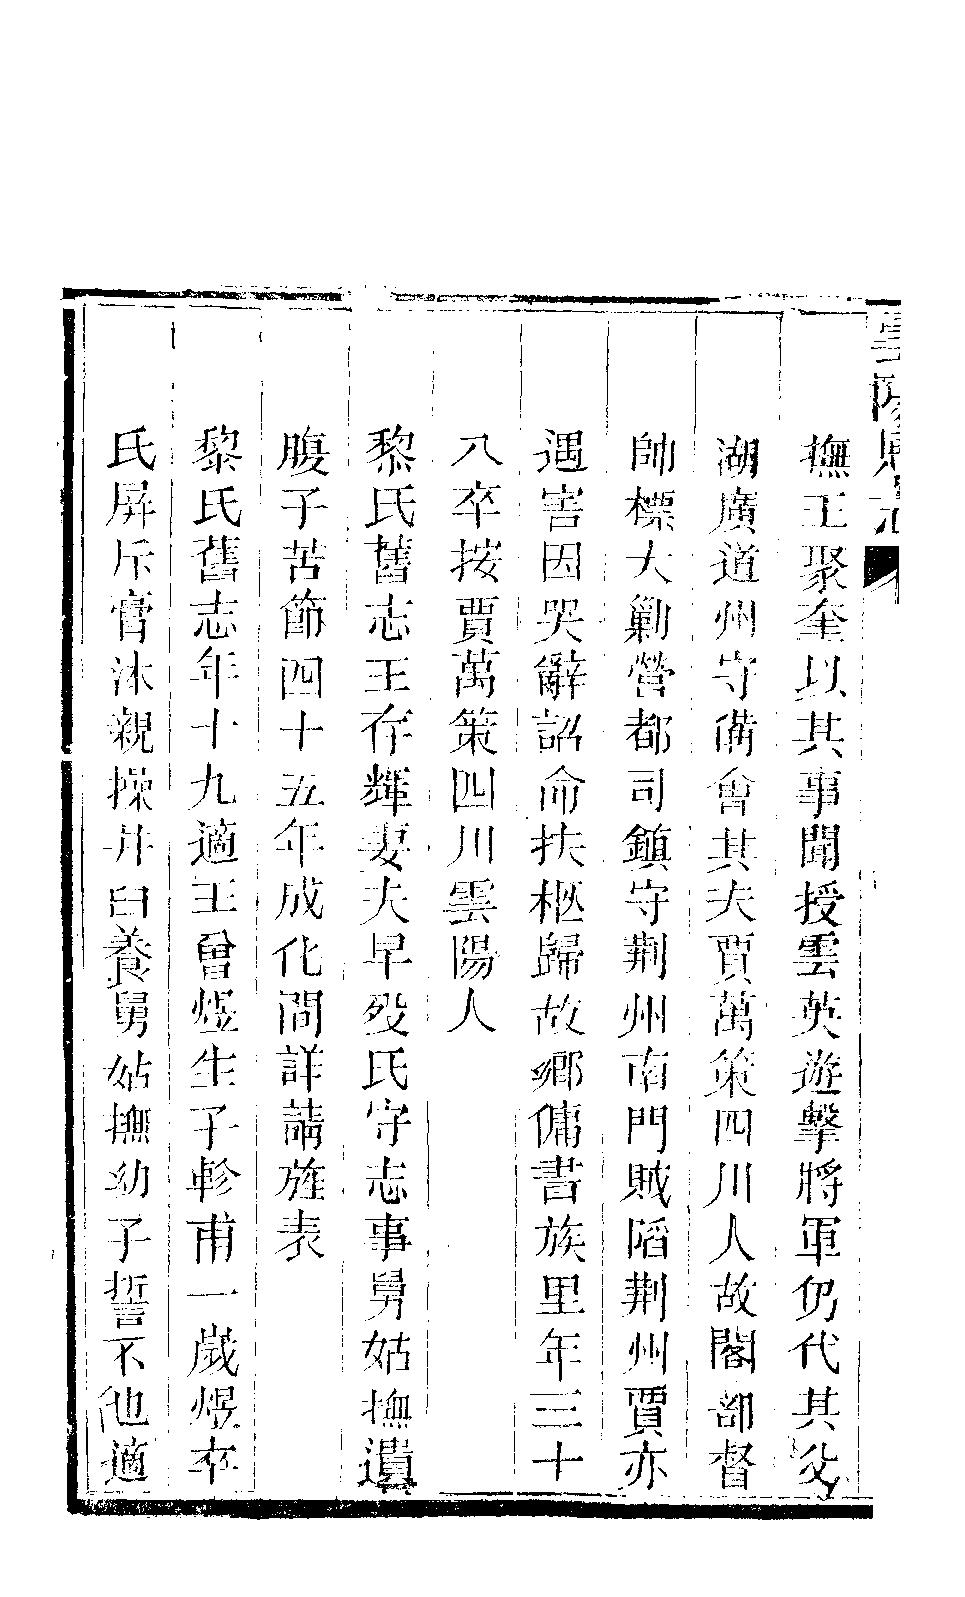 雲陽縣志
撫王聚奎以其事聞授雲英遊擊將軍仍代其父
湖廣道州守備會其夫賈萬策四川人故閣部督
帥標大勦營都司鎮守荆州南門賊陷荆州賈亦
遇害因哭辭詔命扶柩歸故鄉傭書族里年三十
八卒按賈萬策四川雲陽人
黎氏舊志王存輝妻夫早歿氏守志事舅姑撫遺
腹子苦節四十五年成化間詳請旌表
黎氏舊志年十九適王曾煜生子軫甫一歲煜卒
氏屏斥膏沐親操井臼養舅姑撫幼子誓不他適